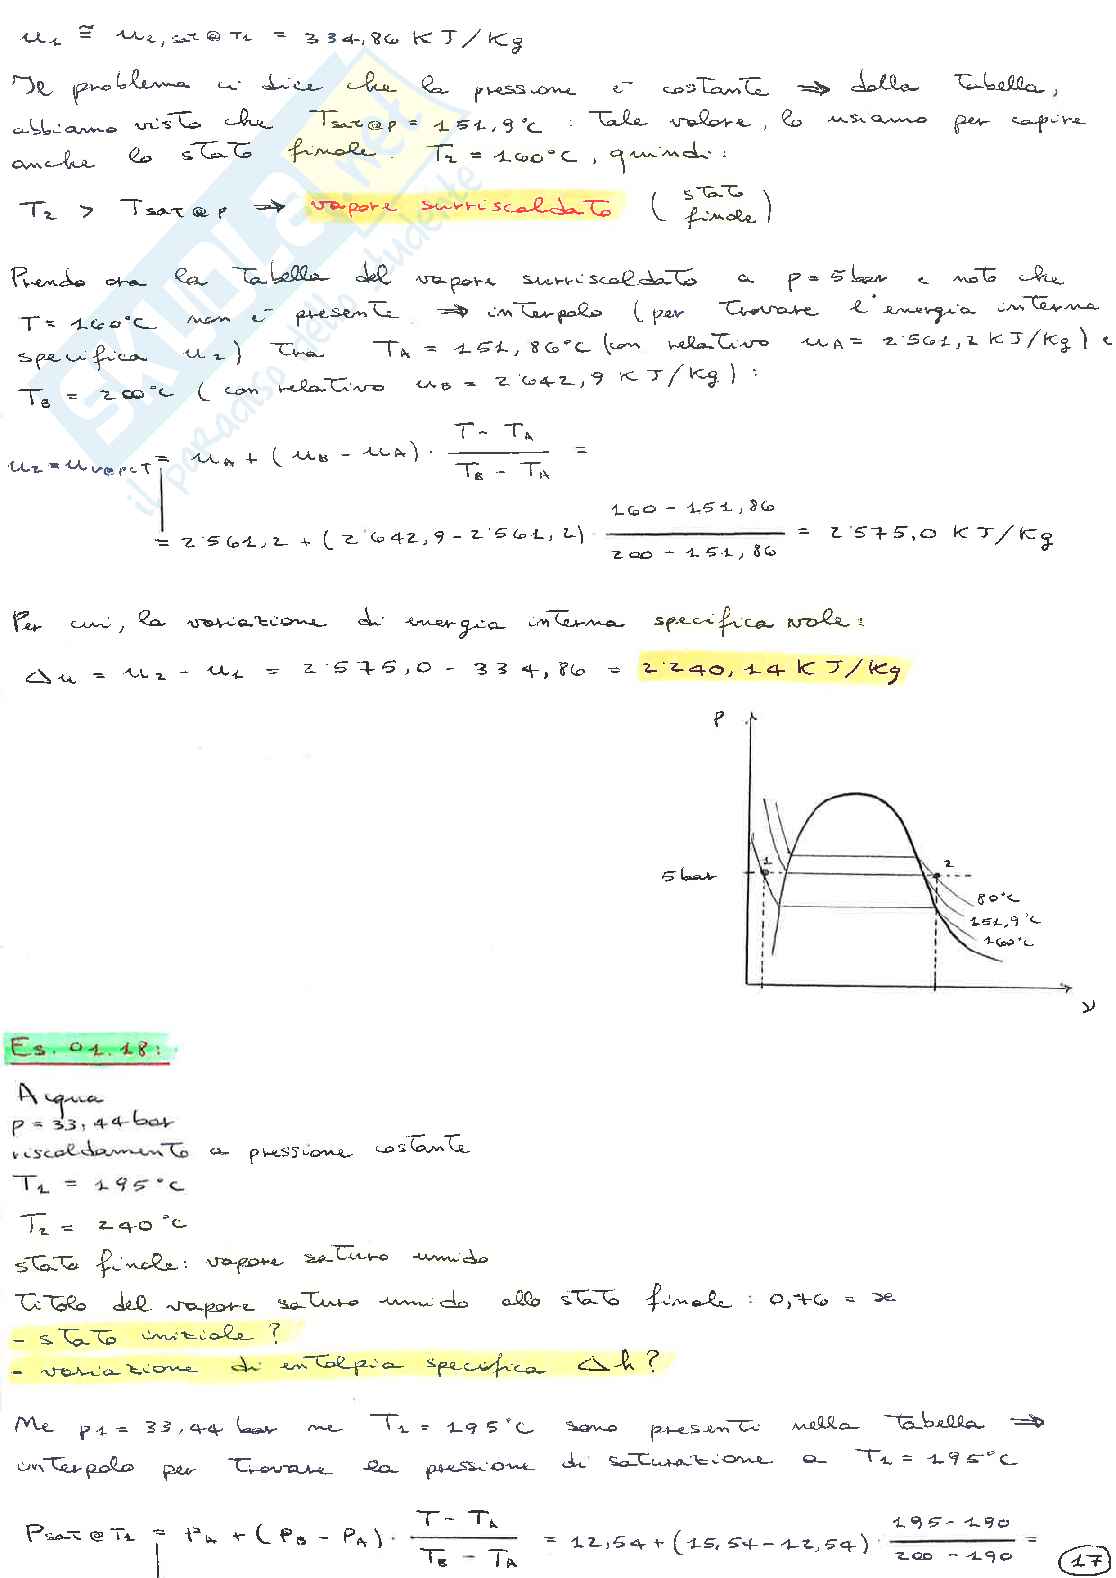 u1 ≅ ul,sat@T1 = 334,86 KJ/Kg
Il problema ci dice che la pressione è costante ⇒ dalla tabella,
abbiamo visto che Tsat@p = 151,9°C : tale valore, lo usiamo per capire
anche lo stato finale. T2 = 160°C, quindi:
T2 > Tsat@p ⇒ vapore surriscaldato (stato finale)
Prendo ora la tabella del vapore surriscaldato a p = 5 bar e noto che
T = 160°C non è presente ⇒ interpolo (per trovare l'energia interna
specifica u2) tra TA = 151,86°C (con relativo uA = 2'561,2 KJ/Kg) e
TB = 200°C (con relativo uB = 2'642,9 KJ/Kg) :
u2 = uv@p,T = uA + (uB - uA) · (T - TA)/(TB - TA) =
= 2'561,2 + (2'642,9 - 2'561,2) · (160 - 151,86)/(200 - 151,86) = 2'575,0 KJ/Kg
Per cui, la variazione di energia interna specifica vale:
Δu = u2 - u1 = 2'575,0 - 334,86 = 2'240,14 KJ/Kg
P
5 bar
1
2
80°C
151,9°C
160°C
v
Es. 01.18:
Acqua
p = 33,44 bar
riscaldamento a pressione costante
T1 = 195°C
T2 = 240°C
stato finale: vapore saturo umido
titolo del vapore saturo umido allo stato finale : 0,76 = x
- stato iniziale?
- variazione di entalpia specifica Δh?
Ne p1 = 33,44 bar ne T1 = 195°C sono presenti nella tabella ⇒
interpolo per trovare la pressione di saturazione a T1 = 195°C
Psat@T1 = PA + (PB - PA) · (T - TA)/(TB - TA) = 12,54 + (15,54 - 12,54) · (195 - 190)/(200 - 190) =
17
SKUOLA.net
il paradiso dello studente